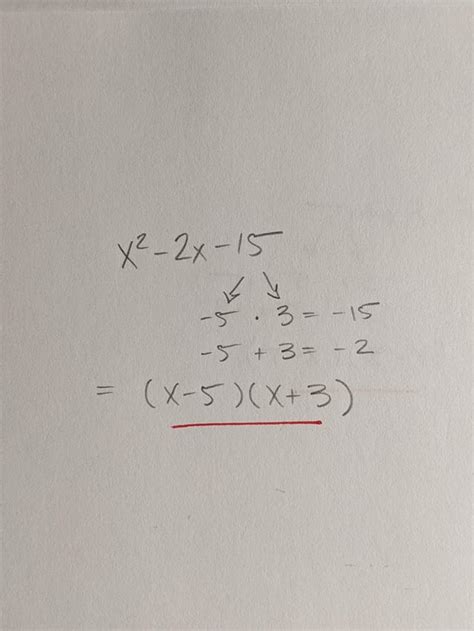 x²-2x-15
-5 · 3 = -15
-5 + 3 = -2
= (x-5)(x+3)